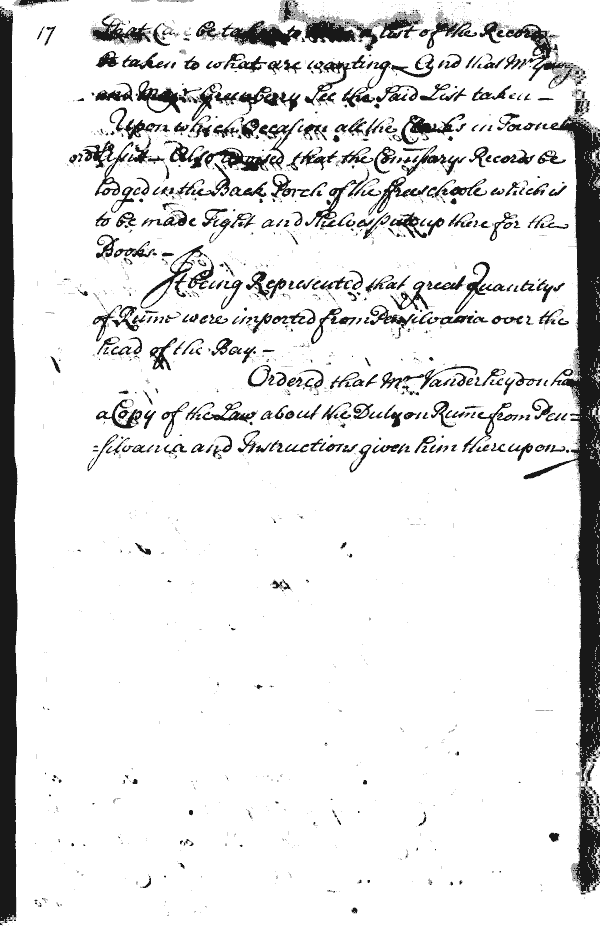 17
that Care be taken to a list of the Records
be taken to what are wanting – And that Mr
and Majr Greenberry See the Said List taken –
Upon which Occasion all the Clarks in Towne
– Also advised that the Comissarys Records be
lodged in the Back Porch of the freeschoole which is
to be made Tight and Shelves putt up there for the
Books –
It being Represented that great Quantitys
of Rume were imported from Pensilvania over the
head of the Bay –
Ordered that Mr Vanderheydon have
a Copy of the Law about the Duty on Rume from Pen=
=silvania and Instructions given him thereupon. –